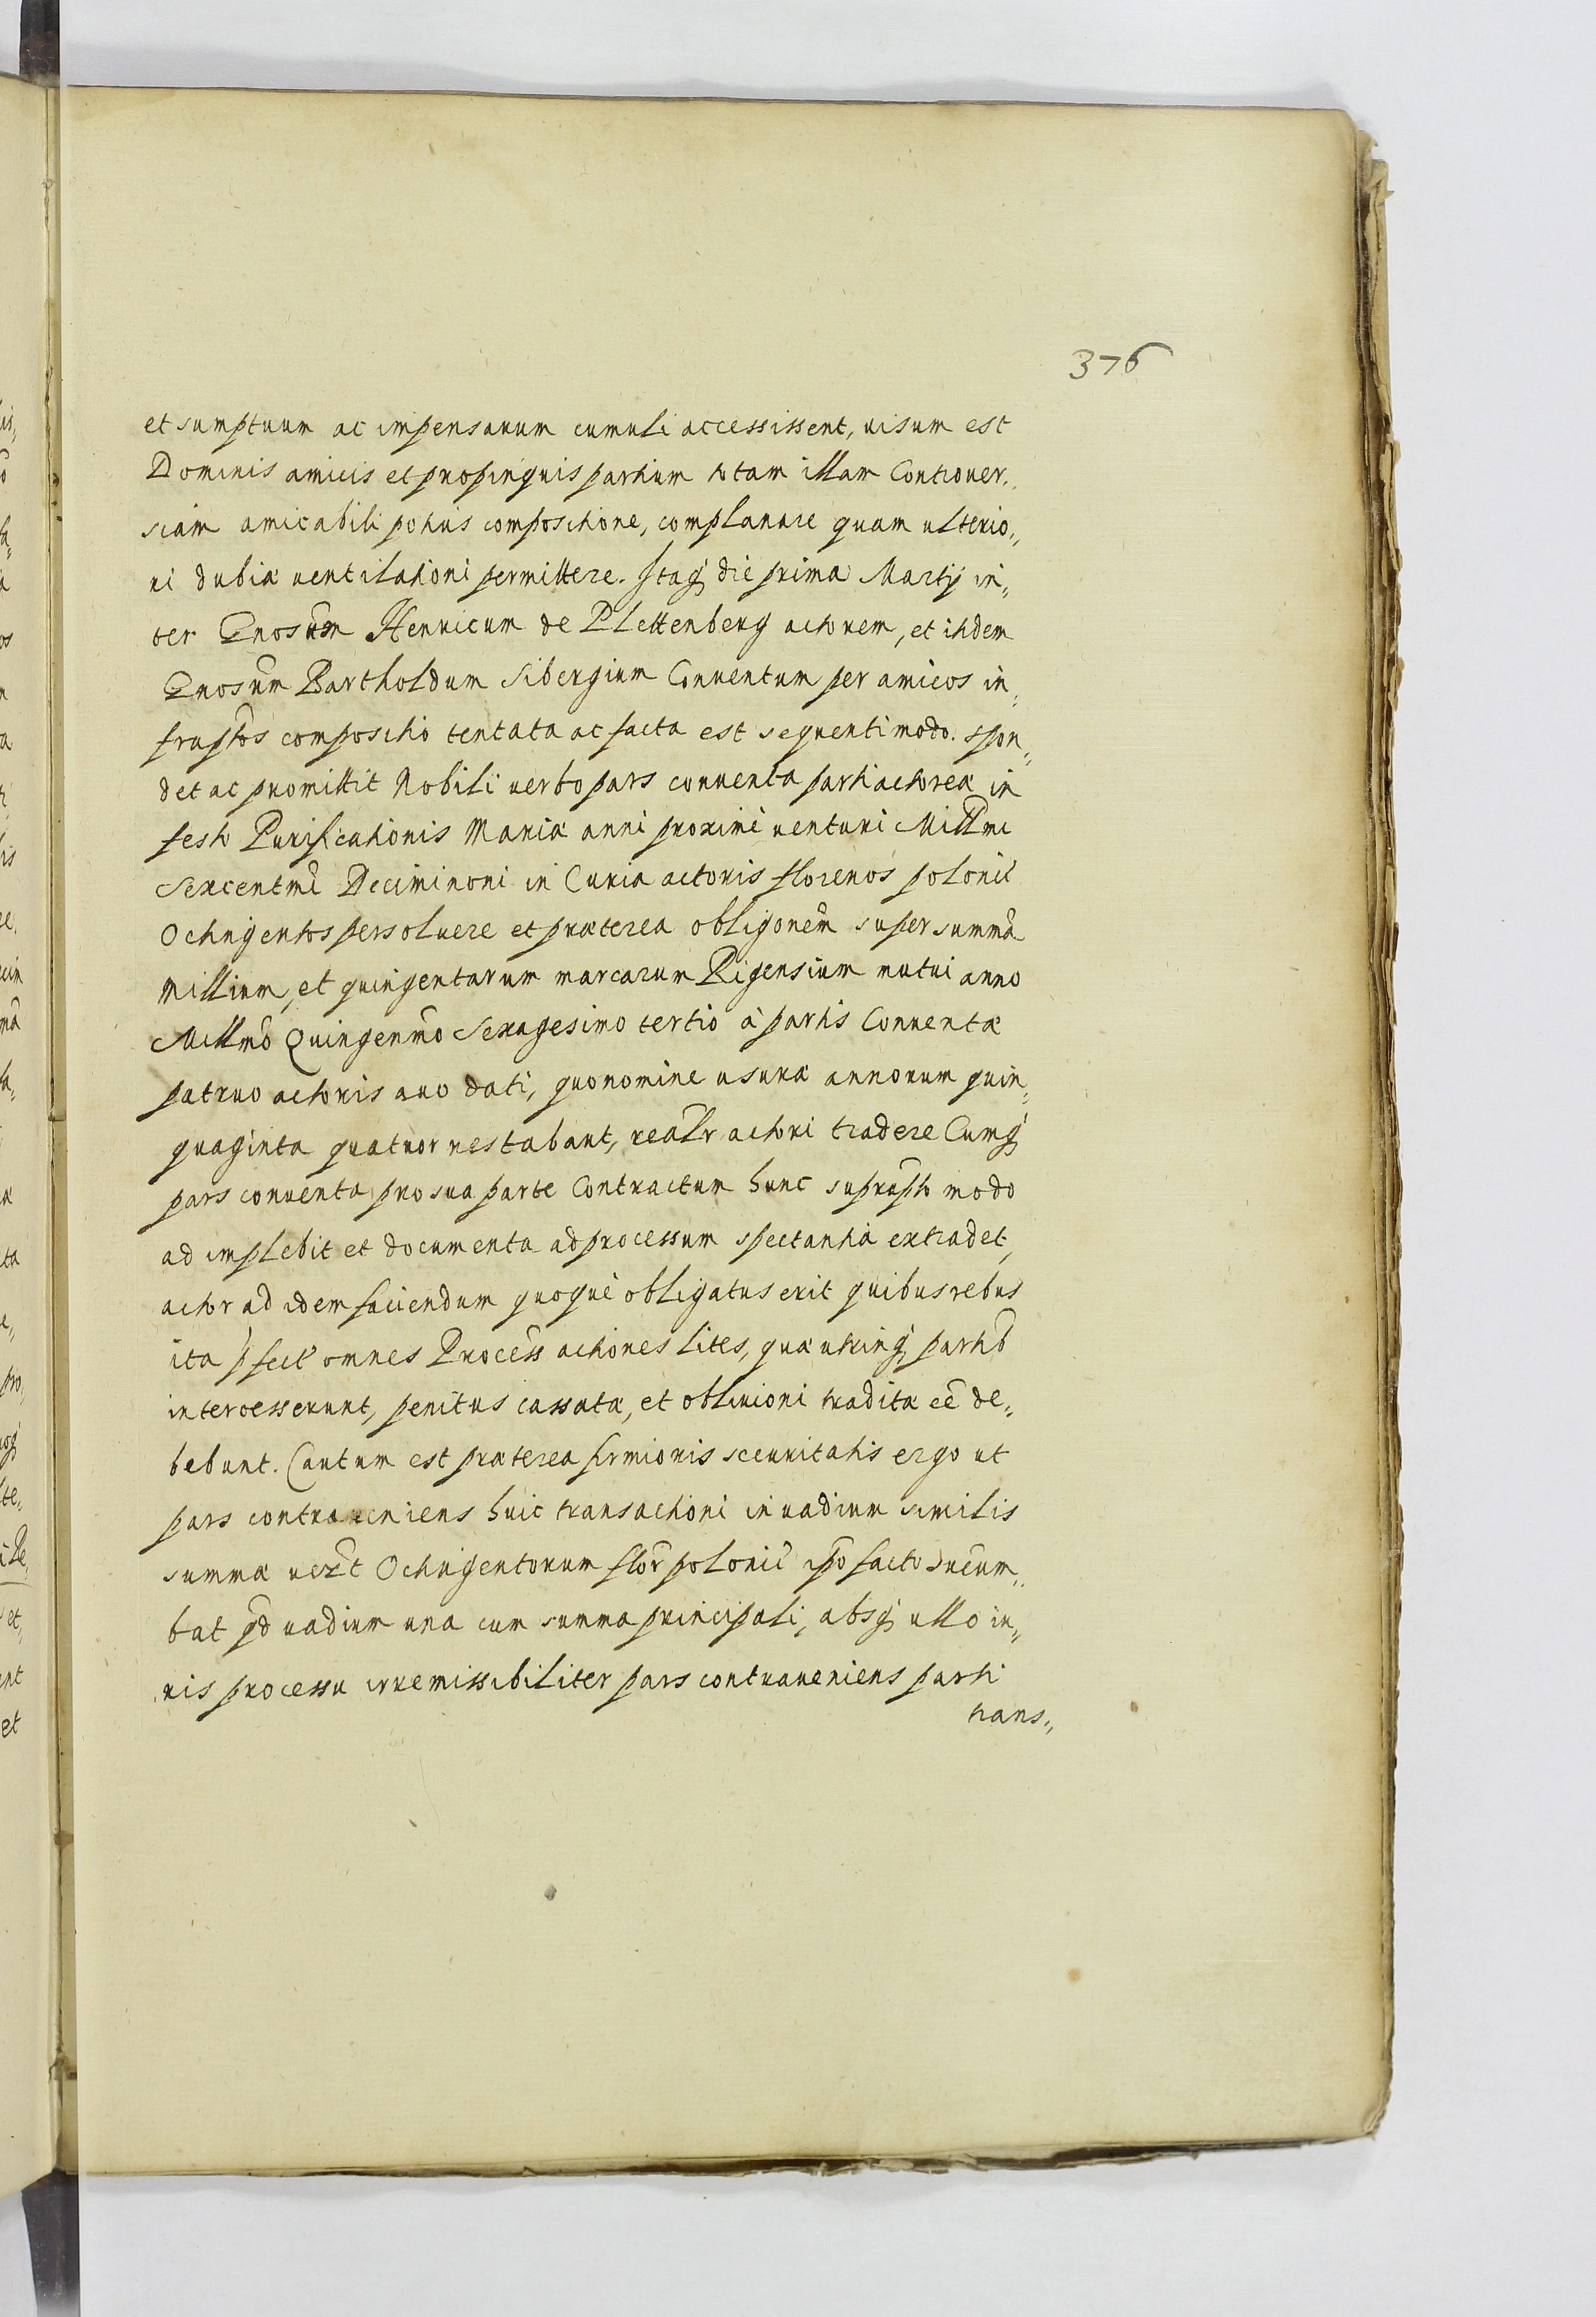 376
et sumptuum ac impensarum cumuli accessissent, uisum est
Dominis amicis et propinquis partium totam illam Controuer„
siam amicabili potius compositione, complanare quam ulterio„
ri dubiæ uentilationi permittere. Itaq die prima Martij in„
ter Gnosum Henricum de Plettenberg actorem, et itidem
Gnosum Bartholdum Sibergium Conuentum per amicos in„
frasptos compositio tentata ac facta est sequenti modo. spon„
det ac promittit Nobili uerbo pars conuenta parti actoreæ in
festo Purificationis Mariæ anni proximi uenturi Millmi
Sexcentmi Deciminoni in Curia actoris florenos polonic
Octingentos persoluere et præterea obligonem super summa
millium, et quingentarum marcarum Rigensium mutui anno
Millmo Quingenmo Sexagesimo tertio à partis Conuentæ
patruo actoris auo dati, quo nomine usuræ annorum quin„
quaginta quatuor restabant, realr actori tradere Cumq
pars conuenta pro sua parte Contractum hunc suprapto modo
ad implebit et documenta ad processum spectantia extradet,
actor ad idem faciendum quoque obligatus erit quibus rebus
ita pfect omnes Process actiones lites, quæ utrinq partib
intercesserunt, penitus cassatæ, et obliuioni traditæ eê de„
bebunt. Cautum est præterea firmioris securitatis ergo ut
pars contraueniens huic transactioni in uadium similis
summæ uezt Octingentorum flor polonic ipo facto sucum„
bat qd uadium una cum summa principali, absq ullo iu„
ris processu irremissibiliter pars contraueniens parti
trans„